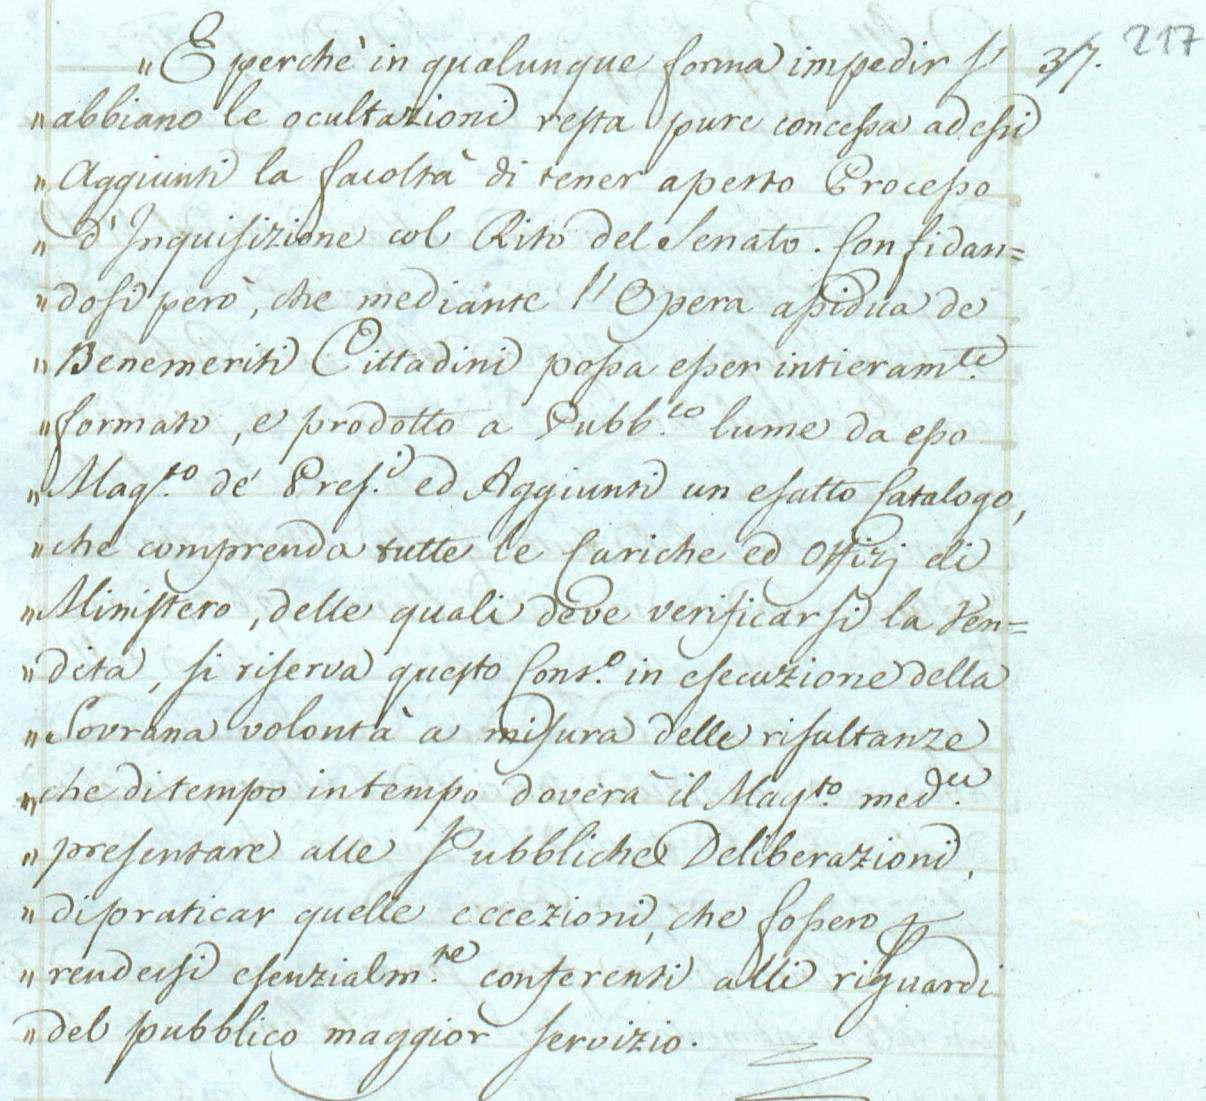 217
„ E perchè in qualunque forma impedir s' 37.
„ abbiano le ocultazioni resta pure concessa ad essi
„ Aggiunti la facoltà di tener aperto Processo
„ d' Inquisizione col Rito del Senato. Confidan=
„ dosi però, che mediante l' Opera assidua de
„ Benemeriti Cittadini possa esser intieram.te
„ formato, e prodotto a Pubb.co lume da esso
„ Mag.to de' Pres.i ed Aggiunti un esatto Catalogo,
„ che comprenda tutte le Cariche ed Offizj di
„ Ministero, delle quali deve verificarsi la Ven=
„ dita, si riserva questo Cons.o in esecuzione della
„ Sovrana volontà a misura delle risultanze
„ che di tempo in tempo doverà il Mag.to med.
„ presentare alle Pubbliche Deliberazioni,
„ di praticar quelle eccezioni, che fossero p
„ rendersi esenzialm.te conferenti alli riguardi
„ del pubblico maggior servizio.